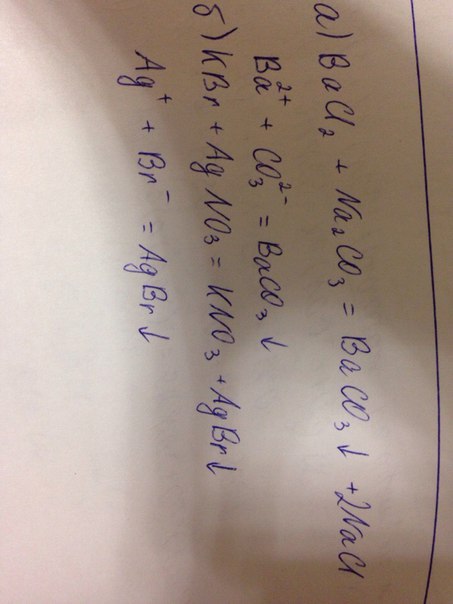 а) BaCl₂ + Na₂CO₃ = BaCO₃↓ + 2NaCl
Ba²⁺ + CO₃²⁻ = BaCO₃↓
б) KBr + AgNO₃ = KNO₃ + AgBr↓
Ag⁺ + Br⁻ = AgBr↓